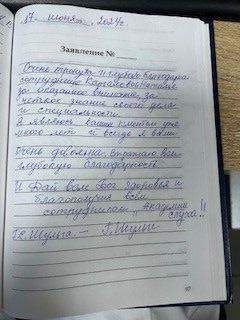 17 июня 2024г
Заявление №
Очень тронута и глубоко благодарна
сотруднице
за оказанное внимание, за
четкое знание своего дела
и специальности.
Я являюсь вашим клиентом уже
много лет и всегда я вами
Очень довольна. Выражаю Вам
глубокую благодарность.
И Дай вам Бог здоровья и
благополучия всем
сотрудникам „Академии
слуха"!!